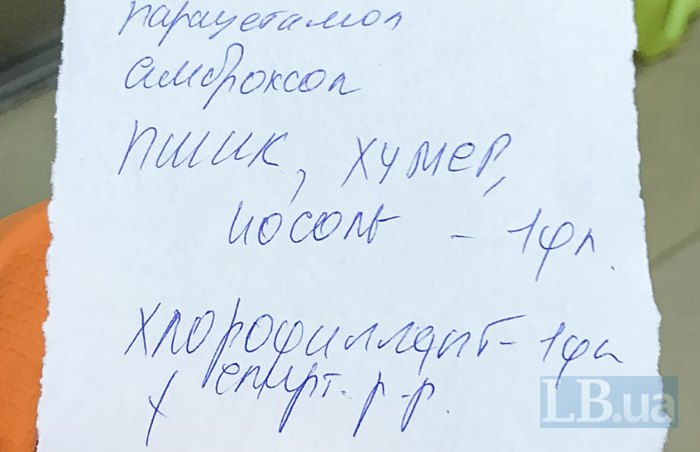 парацетамол
амброксол
пшик, хумер,
носоль - 1фл.
хлорофиллипт - 1фл
спирт. р-р.
LB.ua